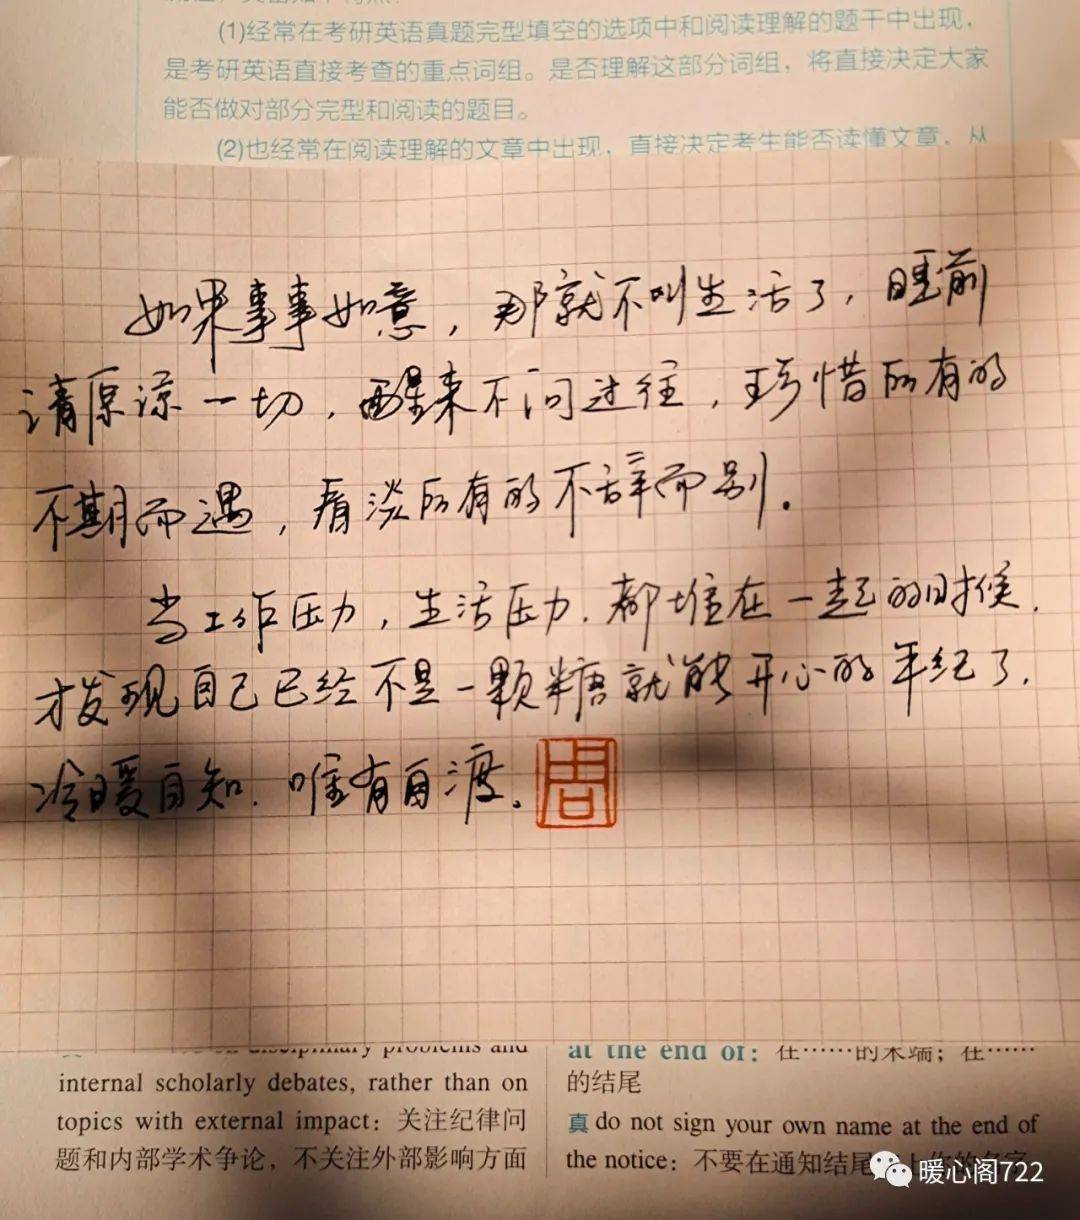 (1)经常在考研英语真题完型填空的选项中和阅读理解的题干中出现，
是考研英语直接考查的重点词组。是否理解这部分词组，将直接决定大家
能否做对部分完型和阅读的题目。
(2)也经常在阅读理解的文章中出现，直接决定考生能否读懂文章，从
如果事事如意，那就不叫生活了，睡前
请原谅一切，醒来不问过往，珍惜所有的
不期而遇，看淡所有的不辞而别。
当工作压力，生活压力.都堆在一起的时候.
才发现自己已经不是一颗糖就能开心的年纪了.
冷暖自知.唯有自渡。
周
disciplinary problems and
internal scholarly debates, rather than on
topics with external impact：关注纪律问
题和内部学术争论，不关注外部影响方面
at the end of：在……的末端；在……
的结尾
真 do not sign your own name at the end of
the notice：不要在通知结尾
暖心阁722